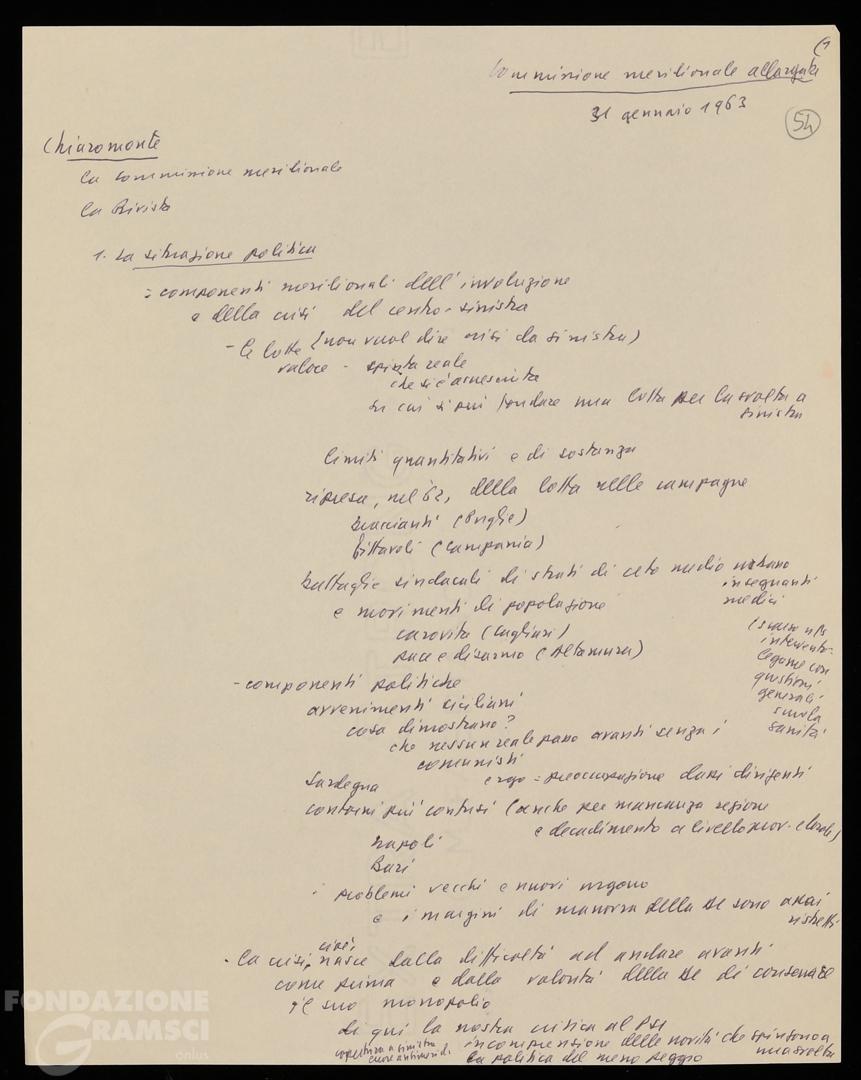 (1
Commissione meridionale allargata
31 gennaio 1963
54
Chiaromonte
La commissione meridionale
La Rivista
1. La situazione politica
= componenti meridionali dell'involuzione
e della crisi del centro-sinistra
- le lotte (non vuol dire crisi da sinistra)
valore - spinta reale
che si è accresciuta
su cui si può fondare una lotta per la svolta a
sinistra
limiti quantitativi e di sostanza
ripresa, nel '62, della lotta nelle campagne
braccianti (Puglie)
fittavoli (Campania)
battaglie sindacali di strati di ceto medio urbano
insegnanti
medici
e movimenti di popolazione
carovita (Cagliari)
pace e disarmo (Altamura)
(scarso ns
intervento-
legame con
questioni
generali
scuola
sanità
- componenti politiche
avvenimenti siciliani
cosa dimostrano?
che nessun reale passo avanti senza i
comunisti
ergo = preoccupazione dei dirigenti
Sardegna
contorni più confusi (anche per mancanza regione
e decadimento a livello prov. e locale)
Napoli
Bari
problemi vecchi e nuovi urgono
e i margini di manovra della DC sono assai
ristretti
- la crisi, cioè, nasce dalla difficoltà ad andare avanti
come prima e dalla volontà della DC di conservare
il suo monopolio
di qui la nostra critica al PSI
incomprensione delle novità che spingono a
una svolta
copertura a sinistra
la politica del meno peggio
FONDAZIONE
GRAMSCI
onlus